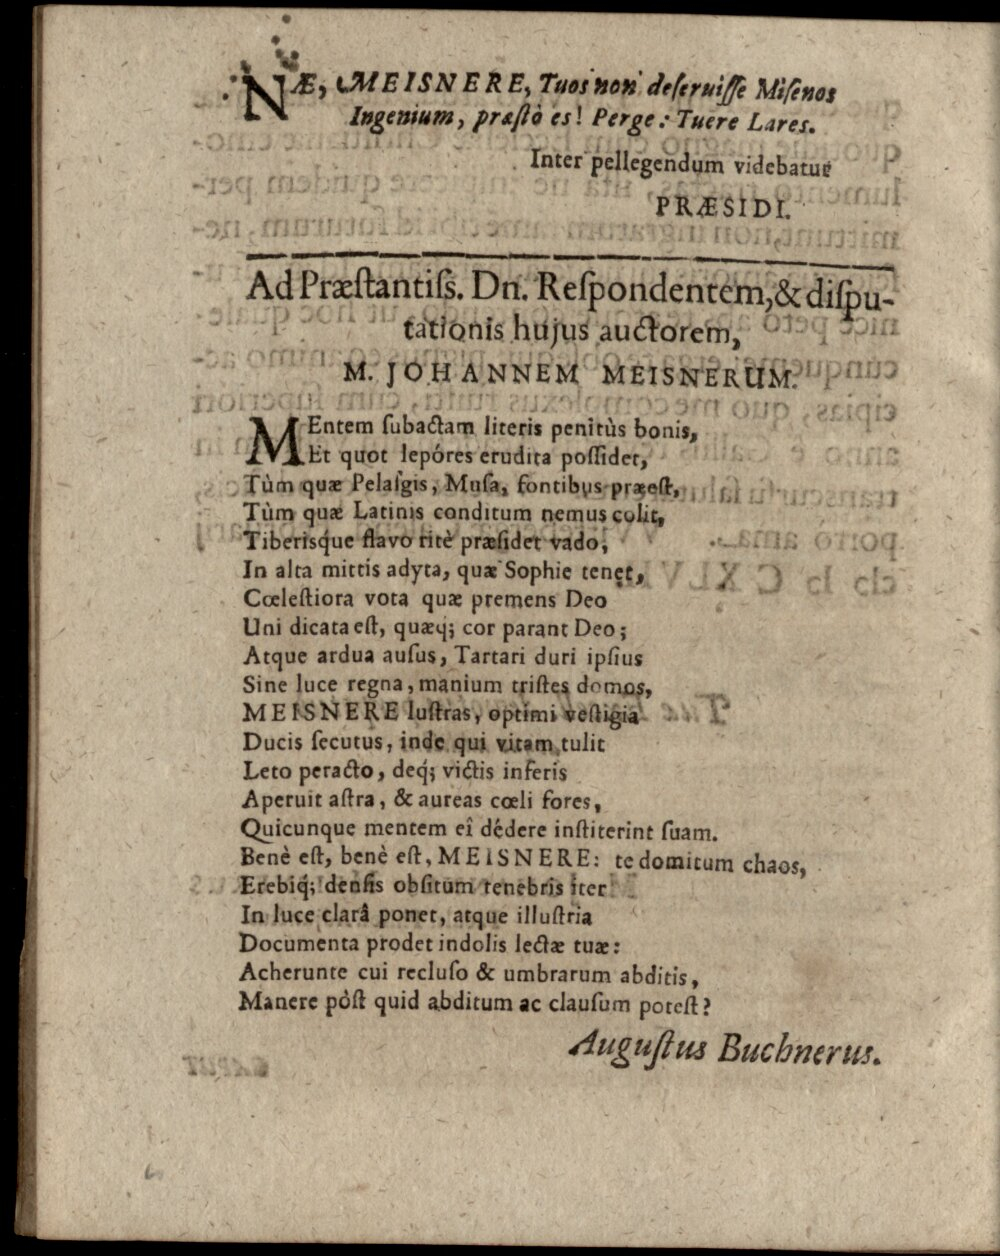 NÆ, MEISNERE, Tuos non deſeruiſſe Miſenos
Ingenium, præſtò es! Perge: Tuere Lares.
Inter pellegendum videbatur
PRÆSIDI.
Ad Præſtantiſs. Dn. Reſpondentem, & diſpu-
tationis hujus auctorem,
M. JOHANNEM MEISNERUM.
MEntem ſubactam literis penitùs bonis,
Et quot lepóres erudita poſſidet,
Tùm quæ Pelaſgis, Muſa, fontibus præeſt,
Tùm quæ Latinis conditum nemus colit,
Tiberisque flavo ritè præſidet vado,
In alta mittis adyta, quæ Sophie tenet,
Cœleſtiora vota quæ premens Deo
Uni dicata eſt, quæq; cor parant Deo;
Atque ardua auſus, Tartari duri ipſius
Sine luce regna, manium triſtes domos,
MEISNERE luſtras, optimi veſtigia
Ducis ſecutus, inde qui vitam tulit
Leto peracto, deq́; victis inferis
Aperuit aſtra, & aureas cœli fores,
Quicunque mentem eî dédere inſtiterint ſuam.
Benè eſt, benè eſt, MEISNERE: te domitum chaos,
Erebiq́; denſis obſitum tenebris iter
In luce clarâ ponet, atque illuſtria
Documenta prodet indolis lectæ tuæ:
Acherunte cui recluſo & umbrarum abditis,
Manere pòſt quid abditum ac clauſum poteſt?
Auguſtus Buchnerus.